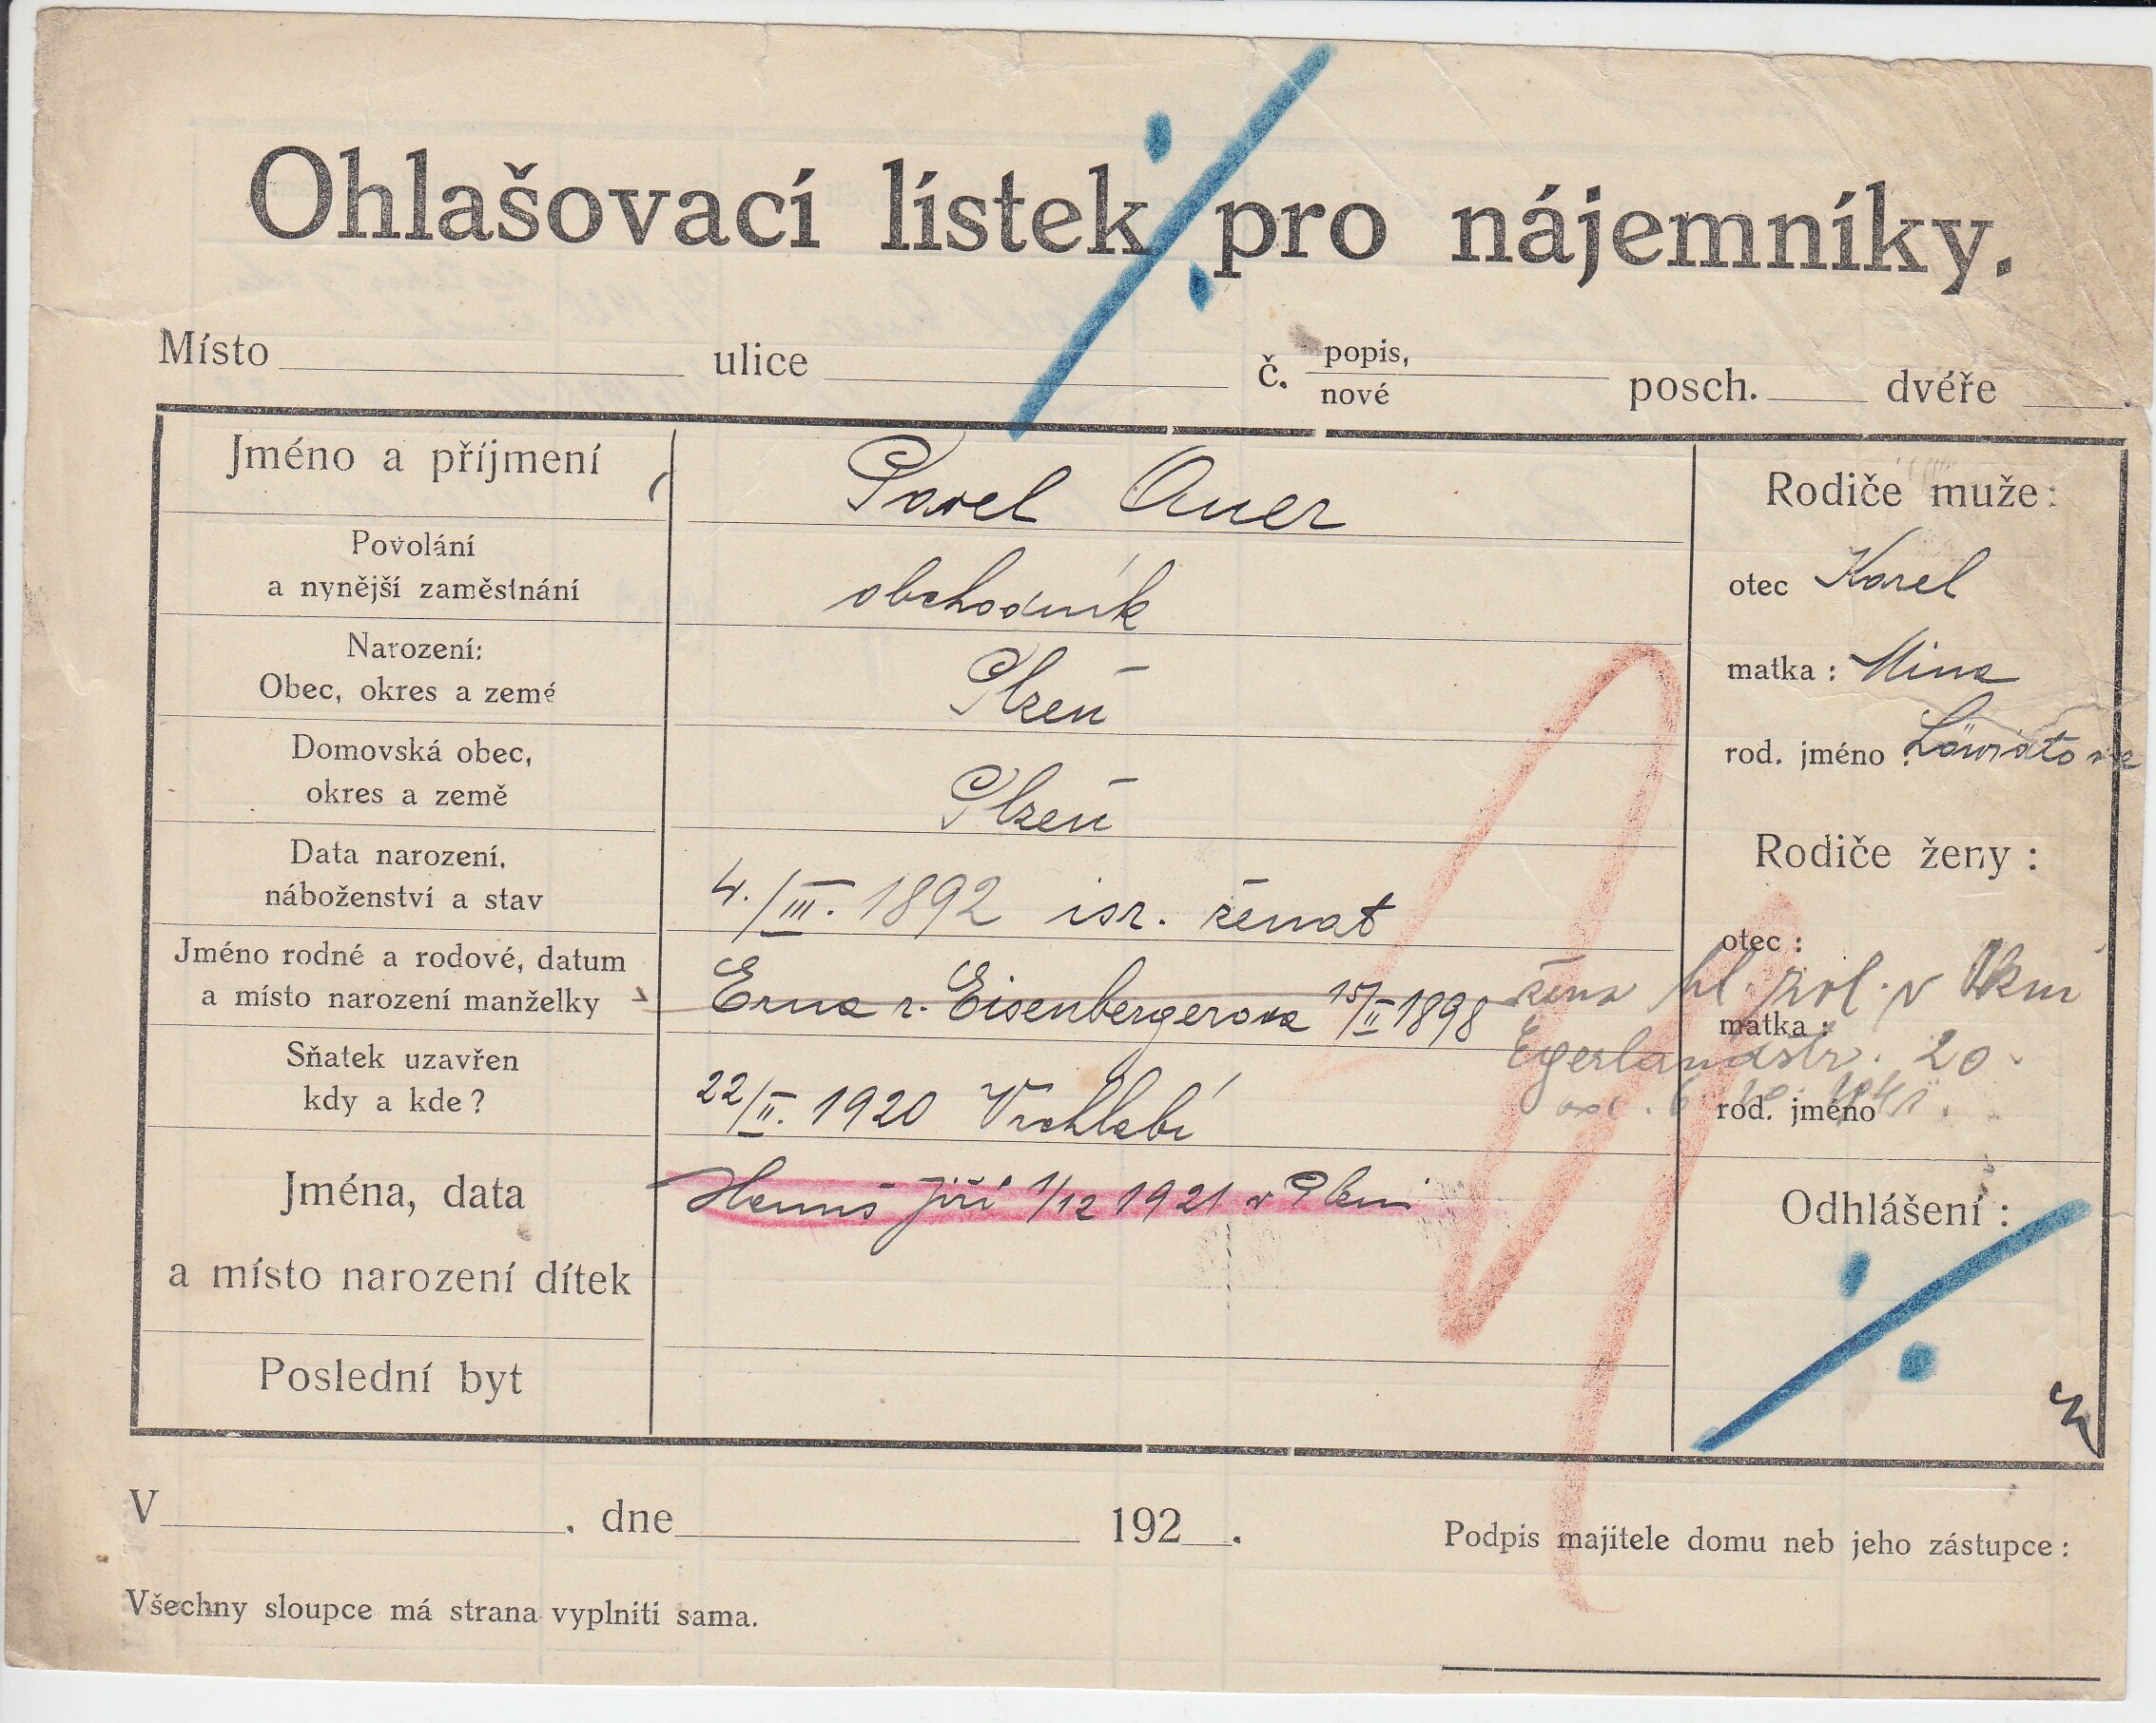 Ohlašovací lístek pro nájemníky.
Místo ulice č. popis, nové posch. dvéře
Jméno a příjmení Pavel Auer
Povolání
a nynější zaměstnání obchodník
Narození:
Obec, okres a země Plzeň
Domovská obec,
okres a země Plzeň
Data narození,
náboženství a stav 4./III. 1892 isr. ženat
Jméno rodné a rodové, datum
a místo narození manželky Erna r. Eisenbergerova 15/II 1898
Sňatek uzavřen
kdy a kde? 22/II. 1920 Vrchlabí
Jména, data
a místo narození dítek Hanuš Jiří 1/12 1921 v Plzni
Poslední byt
Rodiče muže:
otec Karel
matka: Mina
rod. jméno:
Rodiče ženy:
otec:
žena hl. pol. v
matka:
Egerlandstr. 20.
rod. jméno
Odhlášení:
V . dne 192 .
Podpis majitele domu neb jeho zástupce:
Všechny sloupce má strana vyplniti sama.